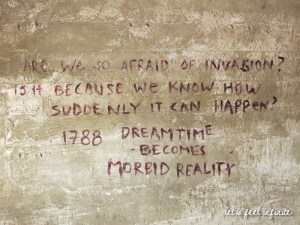 ARE WE SO AFRAID OF INVASION?
IS IT BECAUSE WE KNOW HOW
SUDDENLY IT CAN HAPPEN?
1788 DREAMTIME
- BECOMES
MORBID REALITY
let's feel infinite